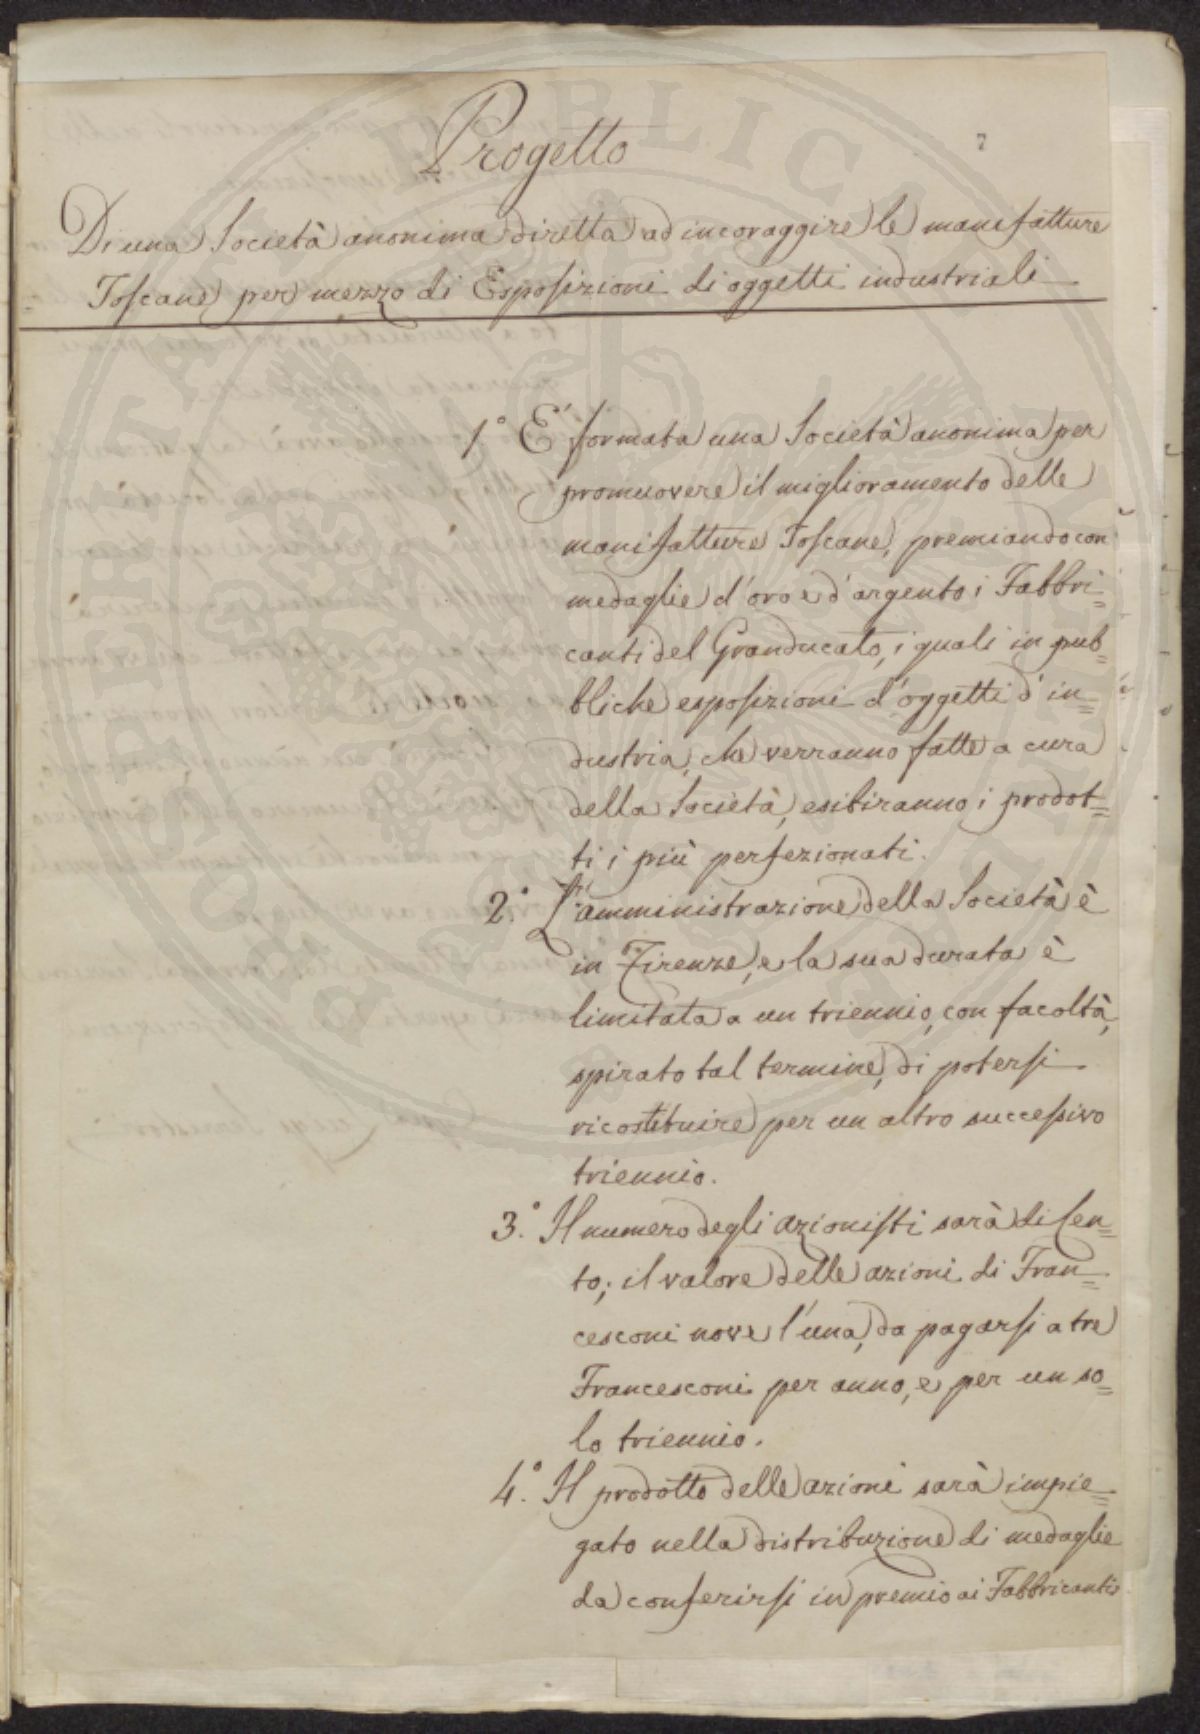 7
Progetto
Di una Società anonima diretta ad incoraggire le manifatture
Toscane per mezzo di Esposizioni di oggetti industriali
1.° E' formata una Società anonima per
promuovere il miglioramento delle
manifatture Toscane, premiando con
medaglie d'oro e d'argento i Fabbri=
canti del Granducato, i quali in pub=
bliche esposizioni d'oggetti d'in=
dustria, che verranno fatte a cura
della Società, esibiranno i prodot=
ti i più perfezionati.
2.° L'amministrazione della Società è
in Firenze, e la sua durata è
limitata a un triennio, con facoltà,
spirato tal termine, di potersi
ricostituire per un altro successivo
triennio.
3.° Il numero degli azionisti sarà di Cen=
to; il valore delle azioni di Fran=
cesconi nove l'una, da pagarsi a tre
Francesconi per anno, e per un so=
lo triennio.
4.° Il prodotto delle azioni sarà impie=
gato nella distribuzione di medaglie
da conferirsi in premio ai Fabbricanti